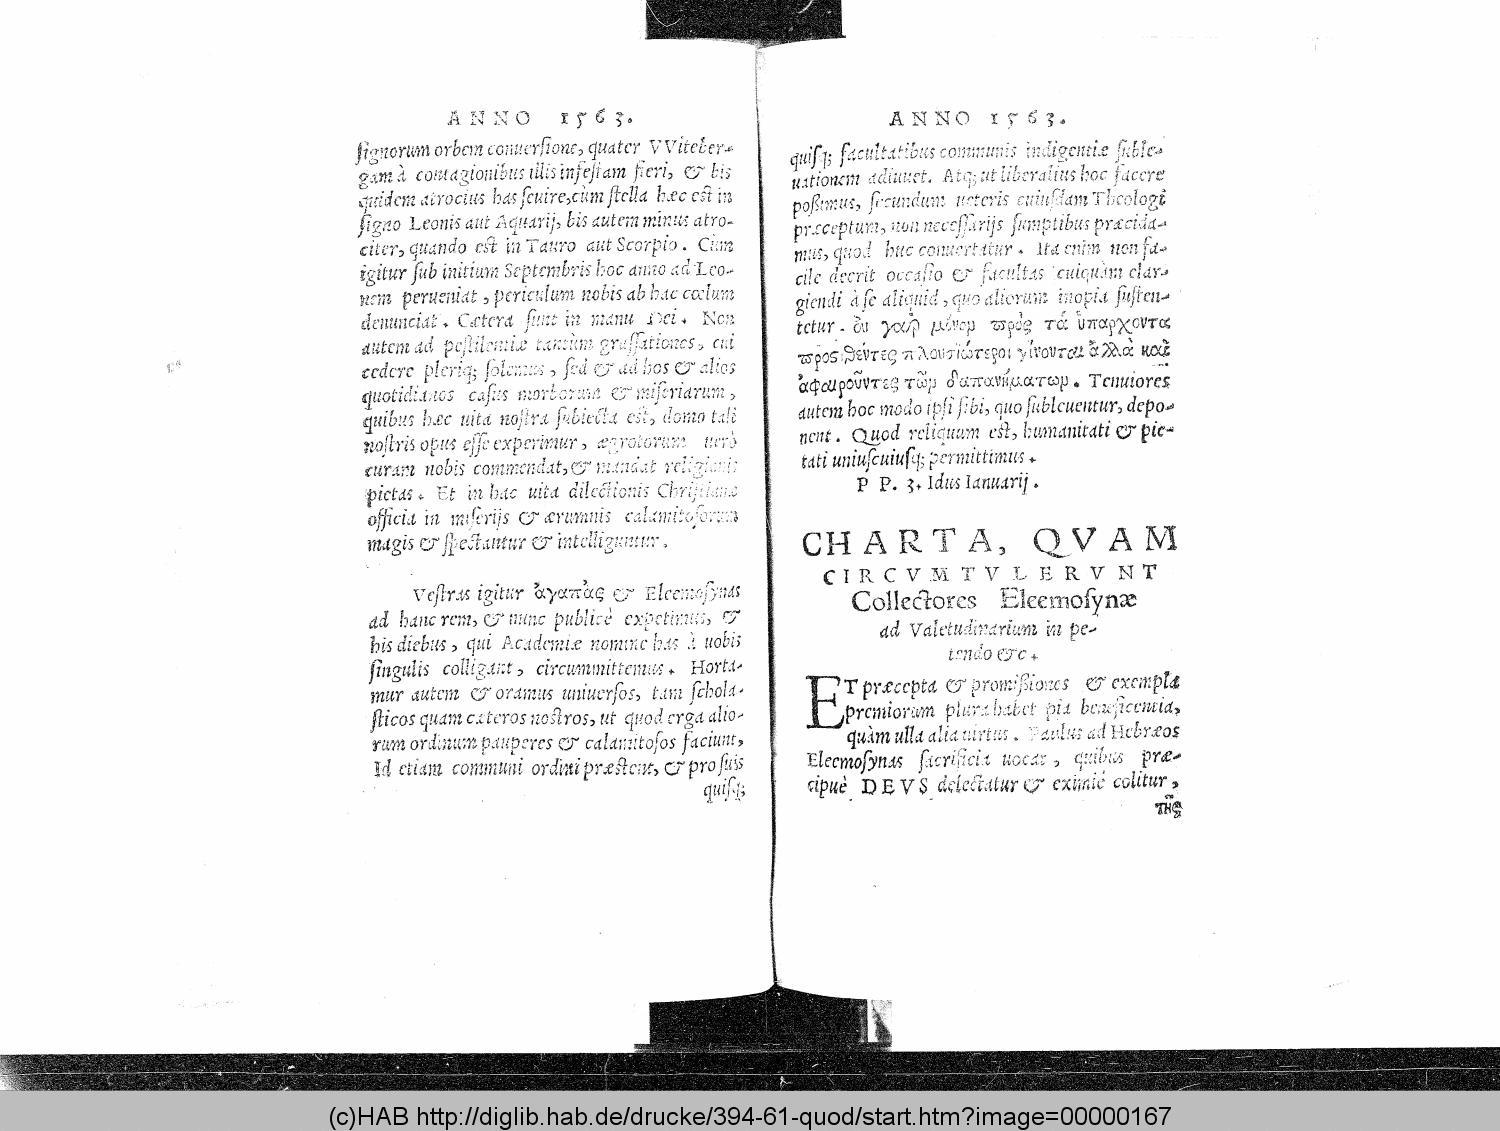 ANNO 1563.
ſignorum orbem conuerſione, quater VViteber-
gam à contagionibus illis infeſtam fieri, & bis
quidem atrocius has ſeuire, cùm ſtella hæc eſt in
ſigno Leonis aut Aquarij, bis autem minus atro-
citer, quando eſt in Tauro aut Scorpio. Cùm
igitur ſub initium Septembris hoc anno ad Leo-
nem perueniat, periculum nobis ab hac cœlum
denunciat. Cætera ſunt in manu Dei. Non
autem ad peſtilentiæ tantùm graſſationes, cui
cedere pleriq; ſolemus, ſed & ad hos & alios
quotidianos caſus morborum & miſeriarum,
quibus hæc uita noſtra ſubiecta eſt, domo tali
noſtris opus eſſe experimur, ægrotorum uerò
curam nobis commendat, & mandat religionis
pietas. Et in hac uita dilectionis Chriſtianæ
officia in miſerijs & ærumnis calamitoſorum
magis & ſpectantur & intelliguntur.
Veſtras igitur ἀγαπὰς & Eleemoſynas
ad hanc rem, & nunc publicè expetimus, &
his diebus, qui Academiæ nomine has à uobis
ſingulis colligant, circummittemus. Horta-
mur autem & oramus uniuerſos, tam ſchola-
ſticos quam cæteros noſtros, ut quod erga alio-
rum ordinum pauperes & calamitoſos faciunt,
Id etiam communi ordini præſtent, & pro ſuis
quiſq;
ANNO 1563.
quiſq; facultatibus communis indigentiæ ſuble-
uationem adiuuet. Atq; ut liberalius hoc facere
poßimus, ſecundum ueteris cuiuſdam Theologi
præceptum, non neceſſarijs ſumptibus præcida-
mus, quod huc conuertatur. Ita enim non fa-
cile deerit occaſio & facultas cuiquàm elar-
giendi à ſe aliquid, quo aliorum inopia ſuſten-
tetur. ὂυ γαρ̀ μόνομ πρὸς τὰ ὑπαρχοντα
προσιθέντες πλουσιώτεροι γίνονται ἀλλὰ καὶ
ἀφαιροῦντες τῶμ δαπανήματωμ. Tenuiores
autem hoc modo ipſi ſibi, quo ſubleuentur, depo-
nent. Quod reliquum eſt, humanitati & pie-
tati uniuſcuiuſq; permittimus.
P P. 3. Idus Ianuarij.
CHARTA, QVAM
CIRCVMTVLERVNT
Collectores Eleemoſynæ
ad Valetudinarium in pe-
tendo &c.
ET præcepta & promißiones & exempla
premiorum plura habet pia beneficentia,
quàm ulla alia uirtus. Paulus ad Hebræos
Eleemoſynas ſacrificia uocat, quibus præ-
cipuè DEVS delectatur & eximiè colitur,
τῆς